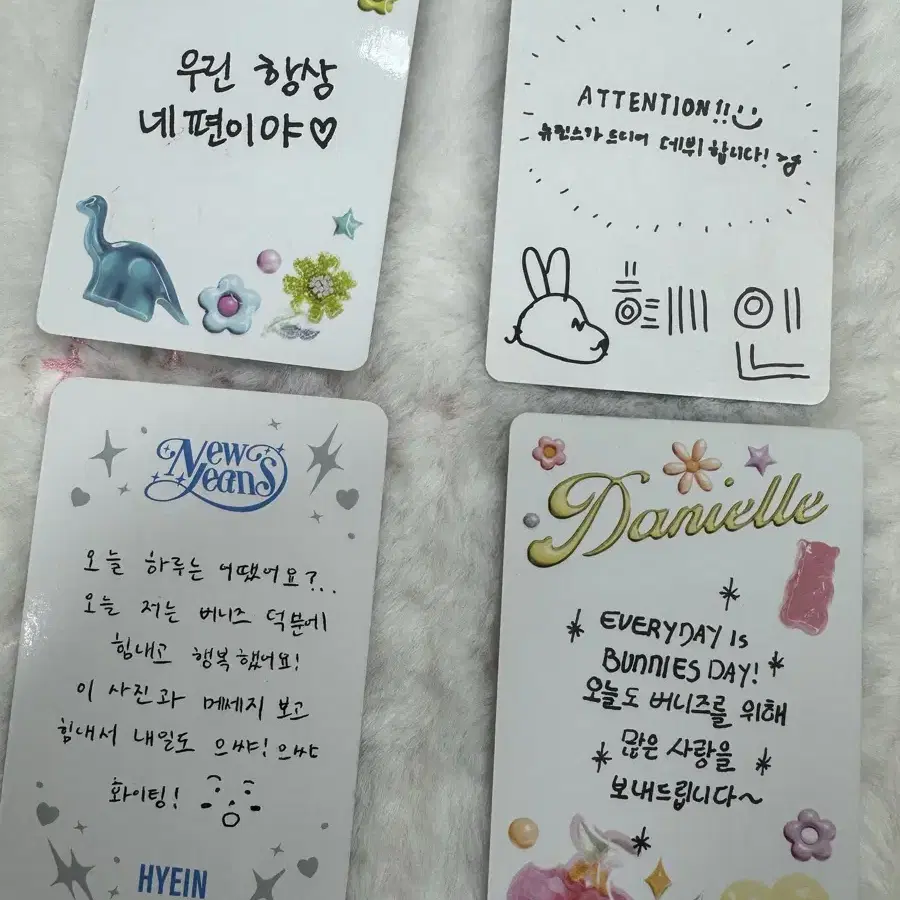 우린 항상
네편이야♡
ATTENTION!!
뉴진스가 드디어 데뷔 합니다!
혜인
New
Jeans
오늘 하루는 어땠어요?..
오늘 저는 버니즈 덕분에
힘내고 행복했어요!
이 사진과 메세지 보고
힘내서 내일도 으쌰! 으쌰
화이팅!
HYEIN
Danielle
EVERYDAY IS
BUNNIES DAY!
오늘도 버니즈를 위해
많은 사랑을
보내드립니다~